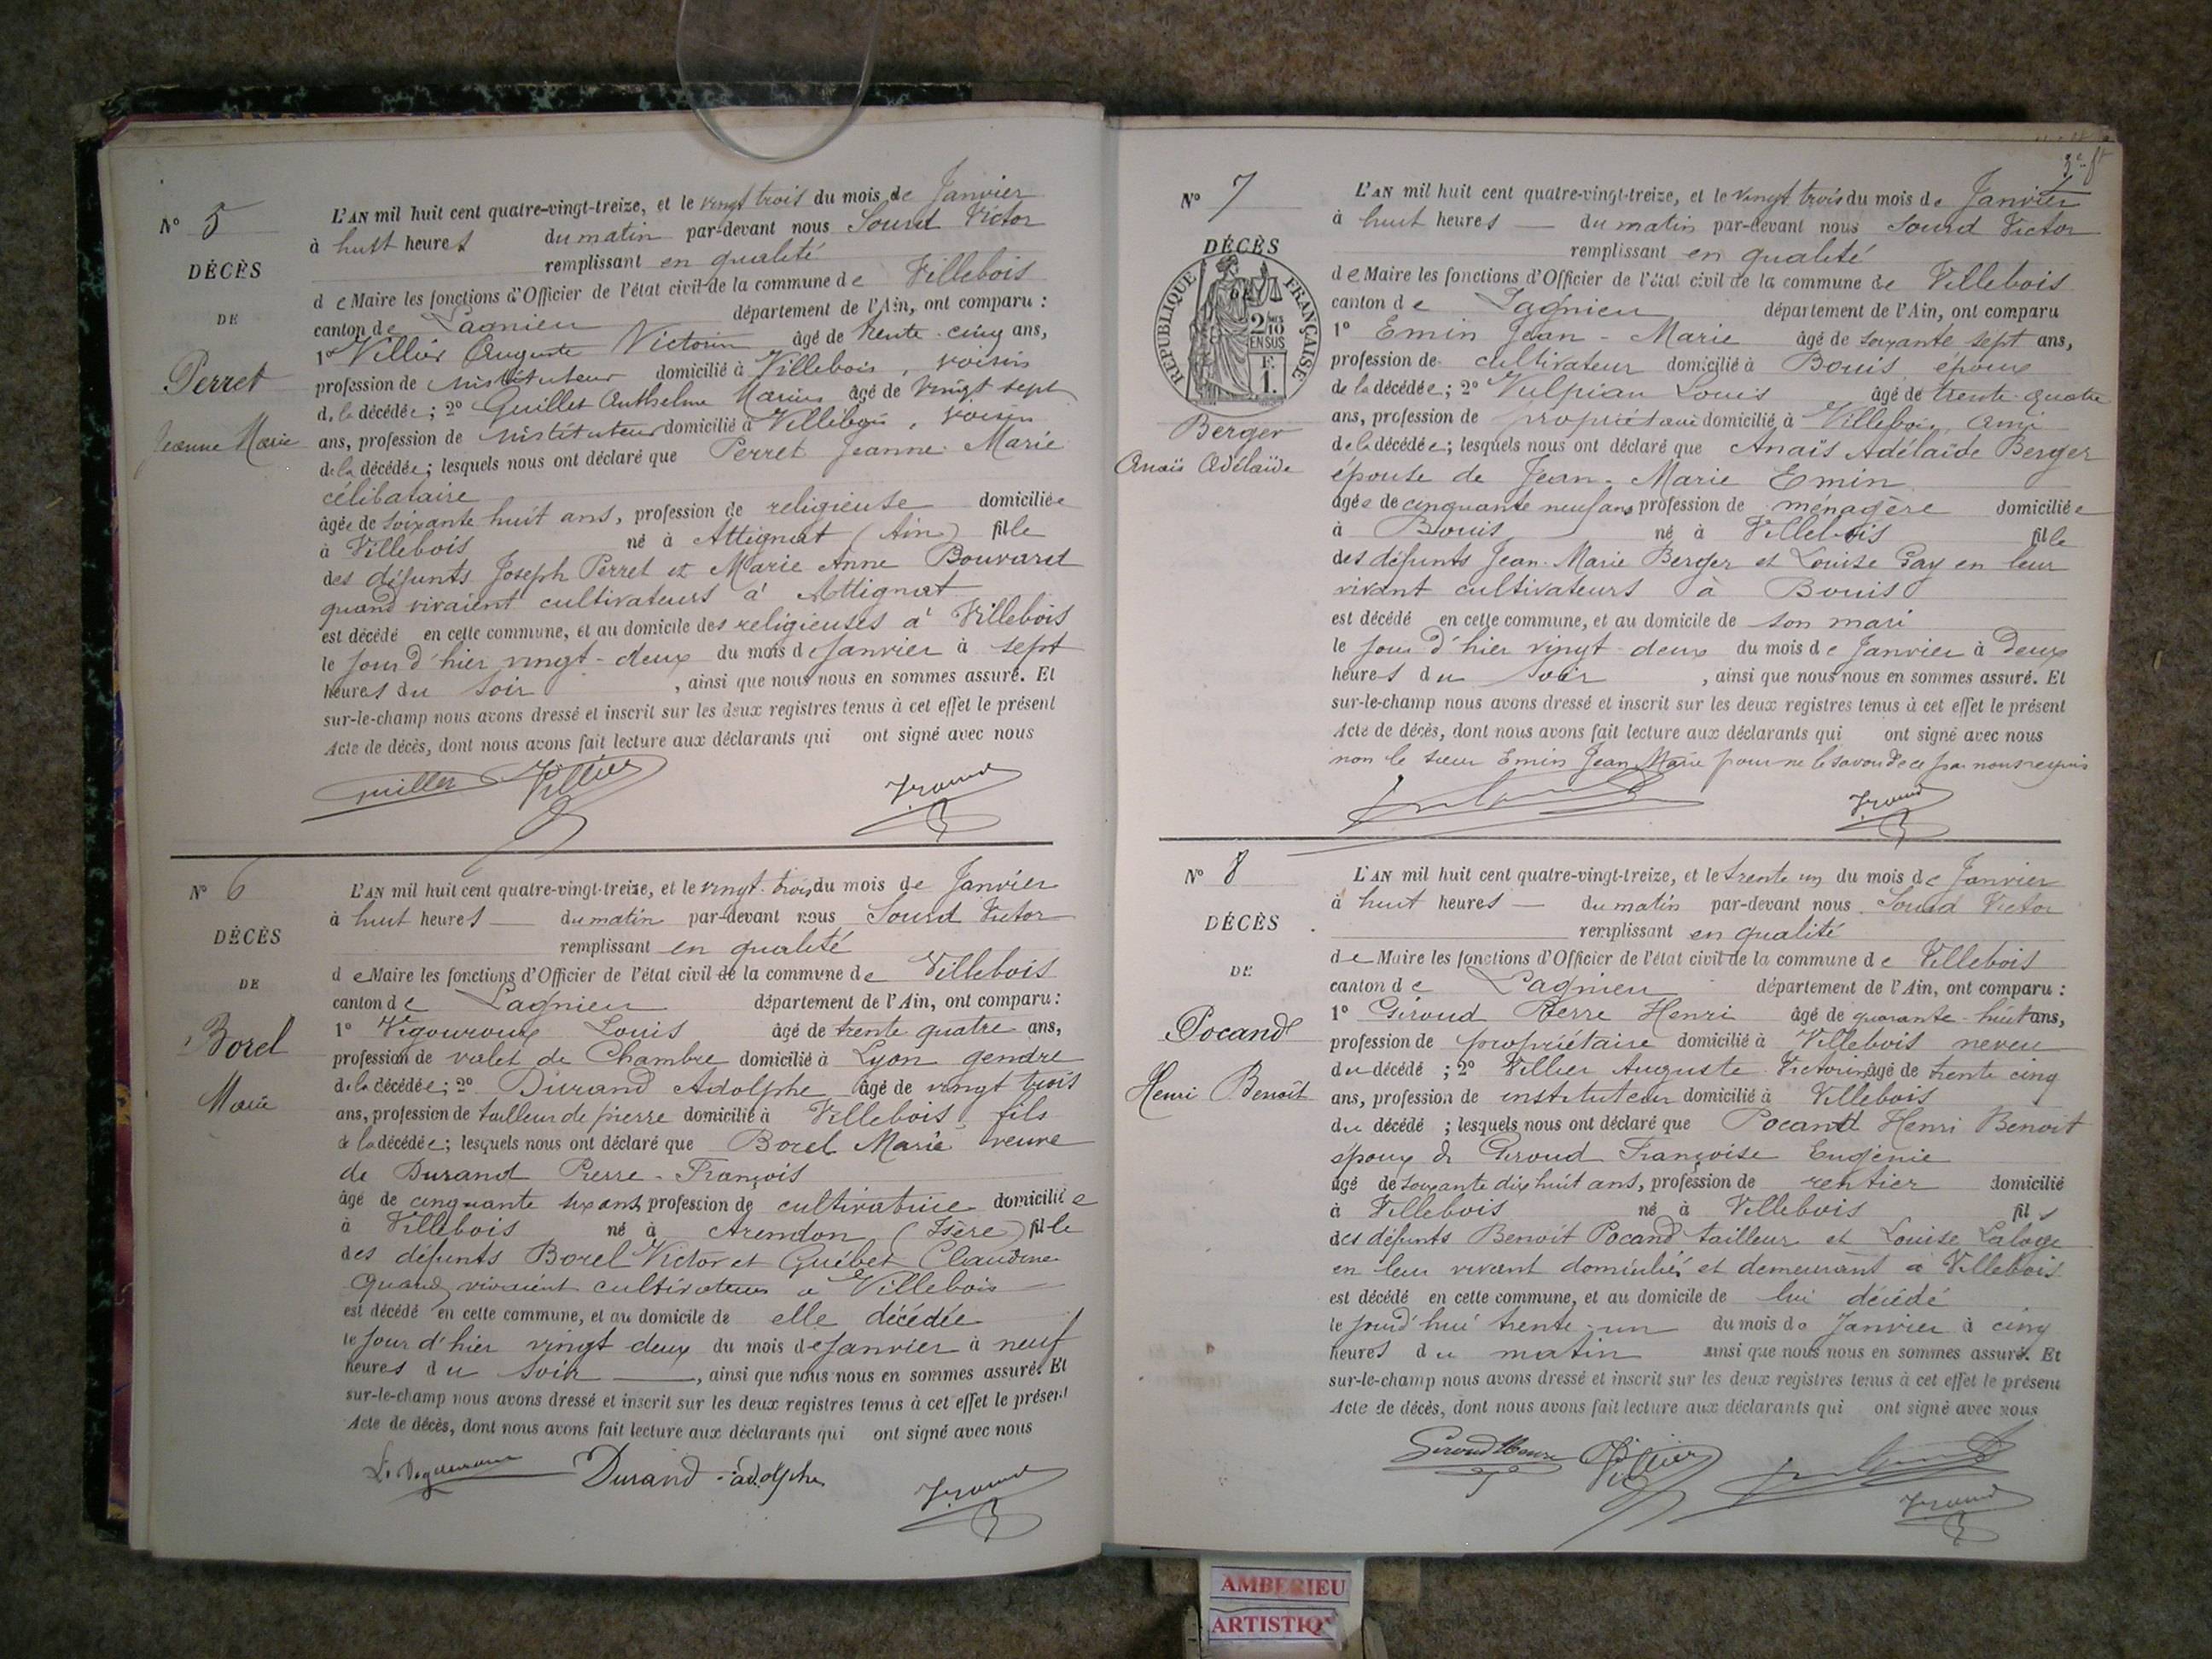 N° 5
DÉCÈS
DE
Perret
Jeanne Marie
L'AN mil huit cent quatre-vingt-treize, et le vingt trois du mois de Janvier
à huit heures du matin par-devant nous Sourd Victor
remplissant en qualité
de Maire les fonctions d'Officier de l'état civil de la commune de Villebois
canton de Lagnieu département de l'Ain, ont comparu :
1° Villier Auguste Victorin âgé de trente-cinq ans,
profession de instituteur domicilié à Villebois, voisin
de la décédée ; 2° Guillet Anthelme Marius âgé de vingt sept
ans, profession de instituteur domicilié à Villebois, voisin
de la décédée ; lesquels nous ont déclaré que Perret Jeanne Marie
célibataire
âgée de soixante huit ans, profession de religieuse domiciliée
à Villebois né à Attignat (Ain) fille
des défunts Joseph Perret et Marie Anne Bouvard
quand vivaient cultivateurs à Attignat
est décédé en cette commune, et au domicile des religieuses à Villebois
le jour d'hier vingt-deux du mois de Janvier à sept
heures du soir, ainsi que nous nous en sommes assuré. Et
sur-le-champ nous avons dressé et inscrit sur les deux registres tenus à cet effet le présent
Acte de décès, dont nous avons fait lecture aux déclarants qui ont signé avec nous
Villier
N° 6
DÉCÈS
DE
Borel
Marie
L'AN mil huit cent quatre-vingt-treize, et le vingt-trois du mois de Janvier
à huit heures — du matin par-devant nous Sourd Victor
remplissant en qualité
de Maire les fonctions d'Officier de l'état civil de la commune de Villebois
canton de Lagnieu département de l'Ain, ont comparu :
1° Vigouroux Louis âgé de trente quatre ans,
profession de valet de Chambre domicilié à Lyon gendre
de la décédée ; 2° Durand Adolphe âgé de vingt trois
ans, profession de tailleur de pierre domicilié à Villebois, fils
de la décédée ; lesquels nous ont déclaré que Borel Marie veuve
de Durand Pierre-François
âgé de cinquante six ans, profession de cultivatrice domiciliée
à Villebois né à Arendon (Isère) fille
des défunts Borel Victor et Guébet Claudine
quand vivaient cultivateurs à Villebois
est décédé en cette commune, et au domicile de elle décédée
le jour d'hier vingt deux du mois de Janvier à neuf
heures du soir —, ainsi que nous nous en sommes assuré. Et
sur-le-champ nous avons dressé et inscrit sur les deux registres tenus à cet effet le présent
Acte de décès, dont nous avons fait lecture aux déclarants qui ont signé avec nous
Durand adolphe
3e ft
N° 7
DÉCÈS
RÉPUBLIQUE FRANÇAISE
2/10
EN SUS
F.
1.
Berger
Anaïs Adélaïde
L'AN mil huit cent quatre-vingt-treize, et le vingt trois du mois de Janvier
à huit heures — du matin par-devant nous Sourd Victor
remplissant en qualité
de Maire les fonctions d'Officier de l'état civil de la commune de Villebois
canton de Lagnieu département de l'Ain, ont comparu
1° Emin Jean-Marie âgé de soixante sept ans,
profession de cultivateur domicilié à Bouis époux
de la décédée ; 2° Vulpian Louis âgé de trente-quatre
ans, profession de propriétaire domicilié à Villebois ami
de la décédée ; lesquels nous ont déclaré que Anaïs Adélaïde Berger
épouse de Jean-Marie Emin
âgée de cinquante neuf ans, profession de ménagère domiciliée
à Bouis né à Villebois fille
des défunts Jean-Marie Berger et Louise Gay en leur
vivant cultivateurs à Bouis
est décédé en cette commune, et au domicile de son mari
le jour d'hier vingt-deux du mois de Janvier à Deux
heures du soir, ainsi que nous nous en sommes assuré. Et
sur-le-champ nous avons dressé et inscrit sur les deux registres tenus à cet effet le présent
Acte de décès, dont nous avons fait lecture aux déclarants qui ont signé avec nous
non le sieur Emin Jean Marie pour ne le savoir de ce par nous requis
N° 8
DÉCÈS
DE
Pocand
Henri Benoît
L'AN mil huit cent quatre-vingt-treize, et le trente un du mois de Janvier
à huit heures — du matin par-devant nous Sourd Victor
remplissant en qualité
de Maire les fonctions d'Officier de l'état civil de la commune de Villebois
canton de Lagnieu département de l'Ain, ont comparu :
1° Giroud Pierre Henri âgé de quarante-huit ans,
profession de propriétaire domicilié à Villebois neveu
du décédé ; 2° Villier Auguste Victorin âgé de trente cinq
ans, profession de instituteur domicilié à Villebois
du décédé ; lesquels nous ont déclaré que Pocand Henri Benoit
époux de Giroud Françoise Eugénie
âgé de soixante dix huit ans, profession de rentier domicilié
à Villebois né à Villebois fils
des défunts Benoit Pocand tailleur et Louise Laloge
en leur vivant domiciliés et demeurant à Villebois
est décédé en cette commune, et au domicile de lui décédé
le jourd'hui trente-un du mois de Janvier à cinq
heures du matin ainsi que nous nous en sommes assuré. Et
sur-le-champ nous avons dressé et inscrit sur les deux registres tenus à cet effet le présent
Acte de décès, dont nous avons fait lecture aux déclarants qui ont signé avec nous
Giroud Henri Villier
AMBERIEU
ARTISTIQ